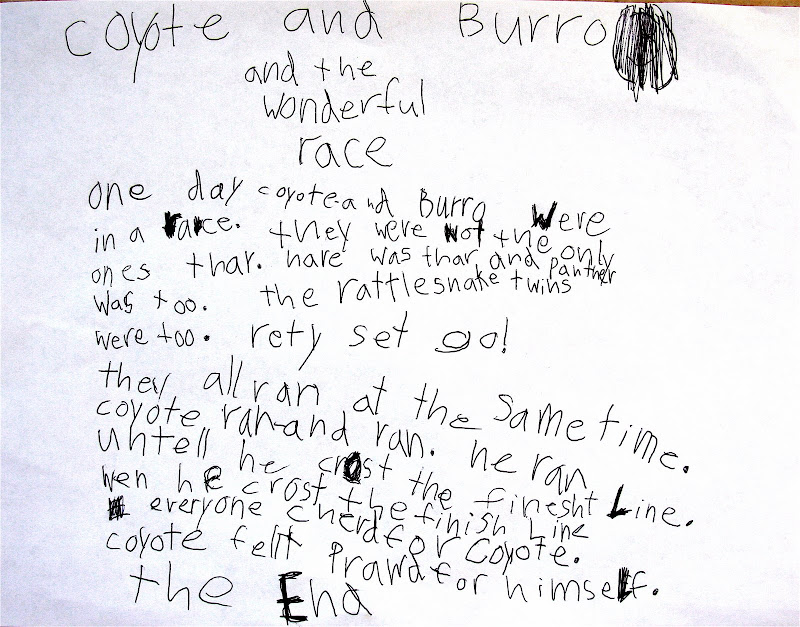 coyote and Burro
and the
wonderful
race
one day coyote and Burro Were
in a rarce. they were not the only
ones thar. hare was thar and panther
was too. the rattlesnake twins
were too. rety set go!
they all ran at the same time.
coyote ran and ran. he ran
untell he crost the finesht Line.
wen he crost the finish Line
everyone cherd for Coyote.
coyote fellt prawd for himself.
the End